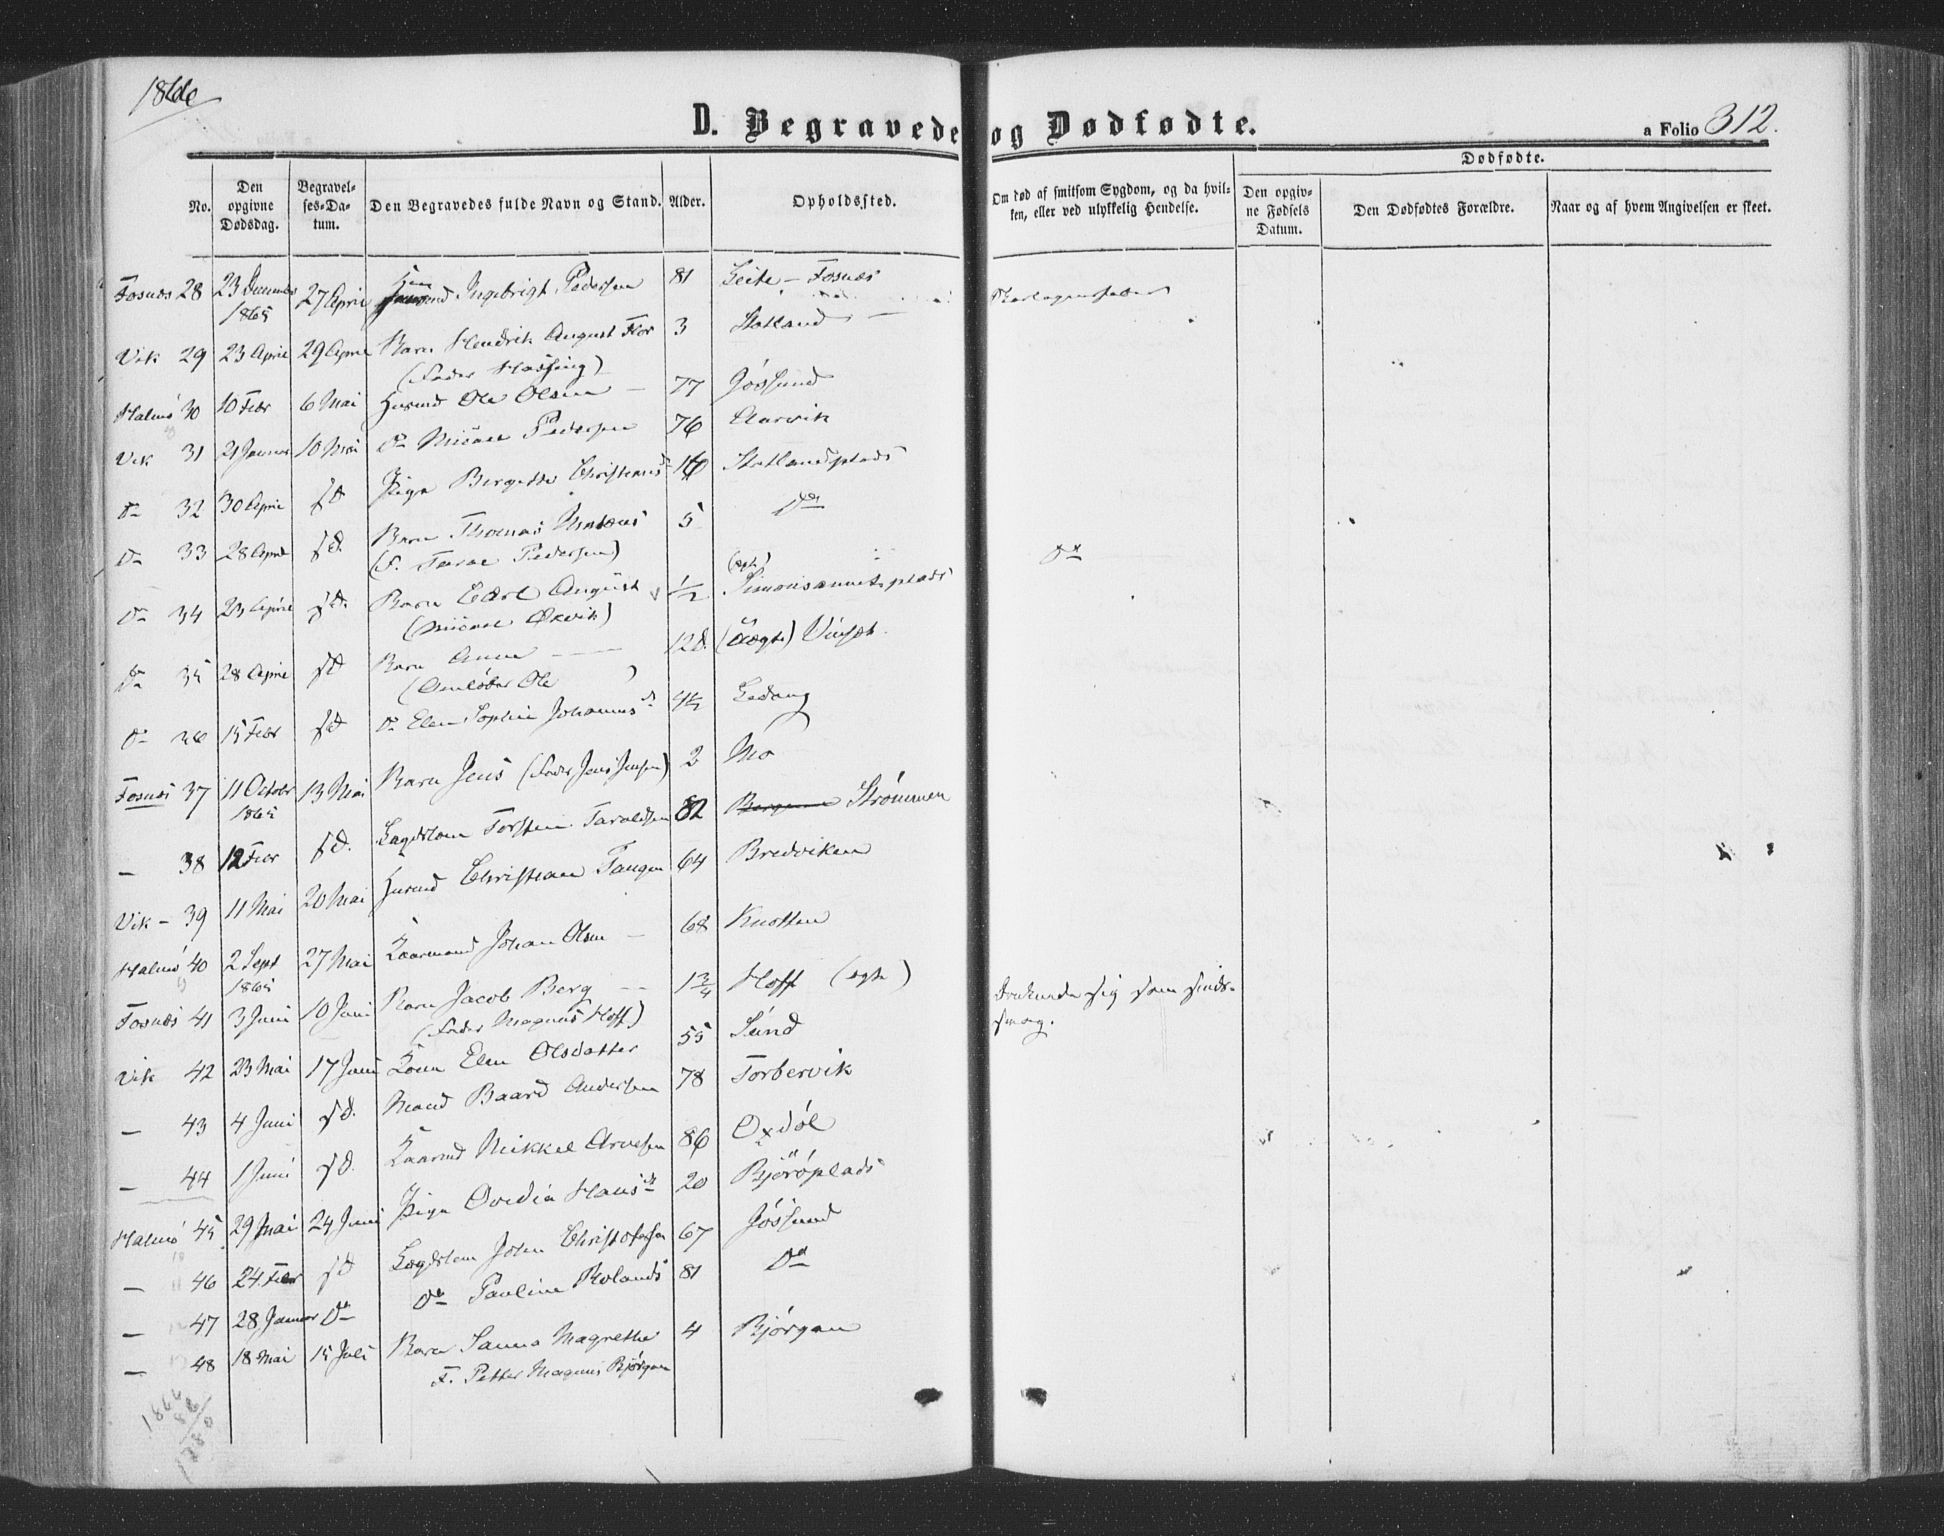 1866
D. Begravede og Dødfødte.
a Folio 312.
No.
Den opgivne Dødsdag.
Begravelses-Datum.
Den Begravedes fulde Navn og Stand.
Alder.
Opholdssted.
Om død af smitsom Sygdom, og da hvilken, eller ved ulykkelig Hendelse.
Dødfødte.
Den opgivne Fødsels Datum.
Den Dødfødtes Forældre.
Naar og af hvem Angivelsen er skeet.
Fosnæs 28 23 1865 27 April Ingebrigt Pedersen 81 Leite - Fosnæs
Vik 29 23 April 29 April Barn Hendrik August Flor 3 Statland
(Fader Hassing)
Halmø 30 10 Febr 6 Mai Husmd Ole Olsen 77 Jøssund
Vik 31 21 Januar 10 Mai Do Pedersen 76 Aarvik
Do 32 30 April sd Pige Bergitte Christensd 16 Statlandsplads
Do 33 28 April sd. Barn Thomas 5 Do
(F. Pedersen)
Do
Do 34 23 April sd. Barn Carl August 1/2 (ægte) Simonsæmnetsplads
Do 35 28 April sd Barn Anne 12d. (Uægte)
(Omløber Ole )
Do 36 15 Febr sd Do Elen Sophie Johannesd 4 1/2 Ledang
Fosnæs 37 11 October 1865 13 Mai Barn Jens (Fader Jens Jensen) 2 Mo
- 38 12 Febr sd. Lægdslem Torsten Taraldsen 82 Strømmen
Vik - 39 11 Mai 20 Mai Husmd Christian Tangen 64 Bredviken
Halmø 40 2 Sept 1865 27 Mai Kaarmand Johan Olsen 68 Knotten
Fosnæs 41 3 Juni 10 Juni Barn Jacob Berg 1 3/4 Hoff (ægte)
(Fader Magnus Hoff)
Vik 42 23 Mai 17 Juni Kone Elen Olsdatter 55 Sund
Druknede sig som sindssvag.
- 43 4 Juni sd. Mand Baard Andersen 78 Torbervik
- 44 1 Juni sd. Kaarmd Mikkel Arnesen 86 Oxdøl
Halmø 45 29 Mai 24 Juni Pige Ovidia Hansd 20 Bjørøplads
- 46 24 Febr sd Lægdslem John Christofersen 67 Jøssund
- 47 28 Januar Do Do Pauline Rolandsd 81 Do
- 48 18 Mai 15 Juli Barn Sanna Magrethe 4 Bjørgan
F. Petter Magnus Bjørgan
1866
86
1780